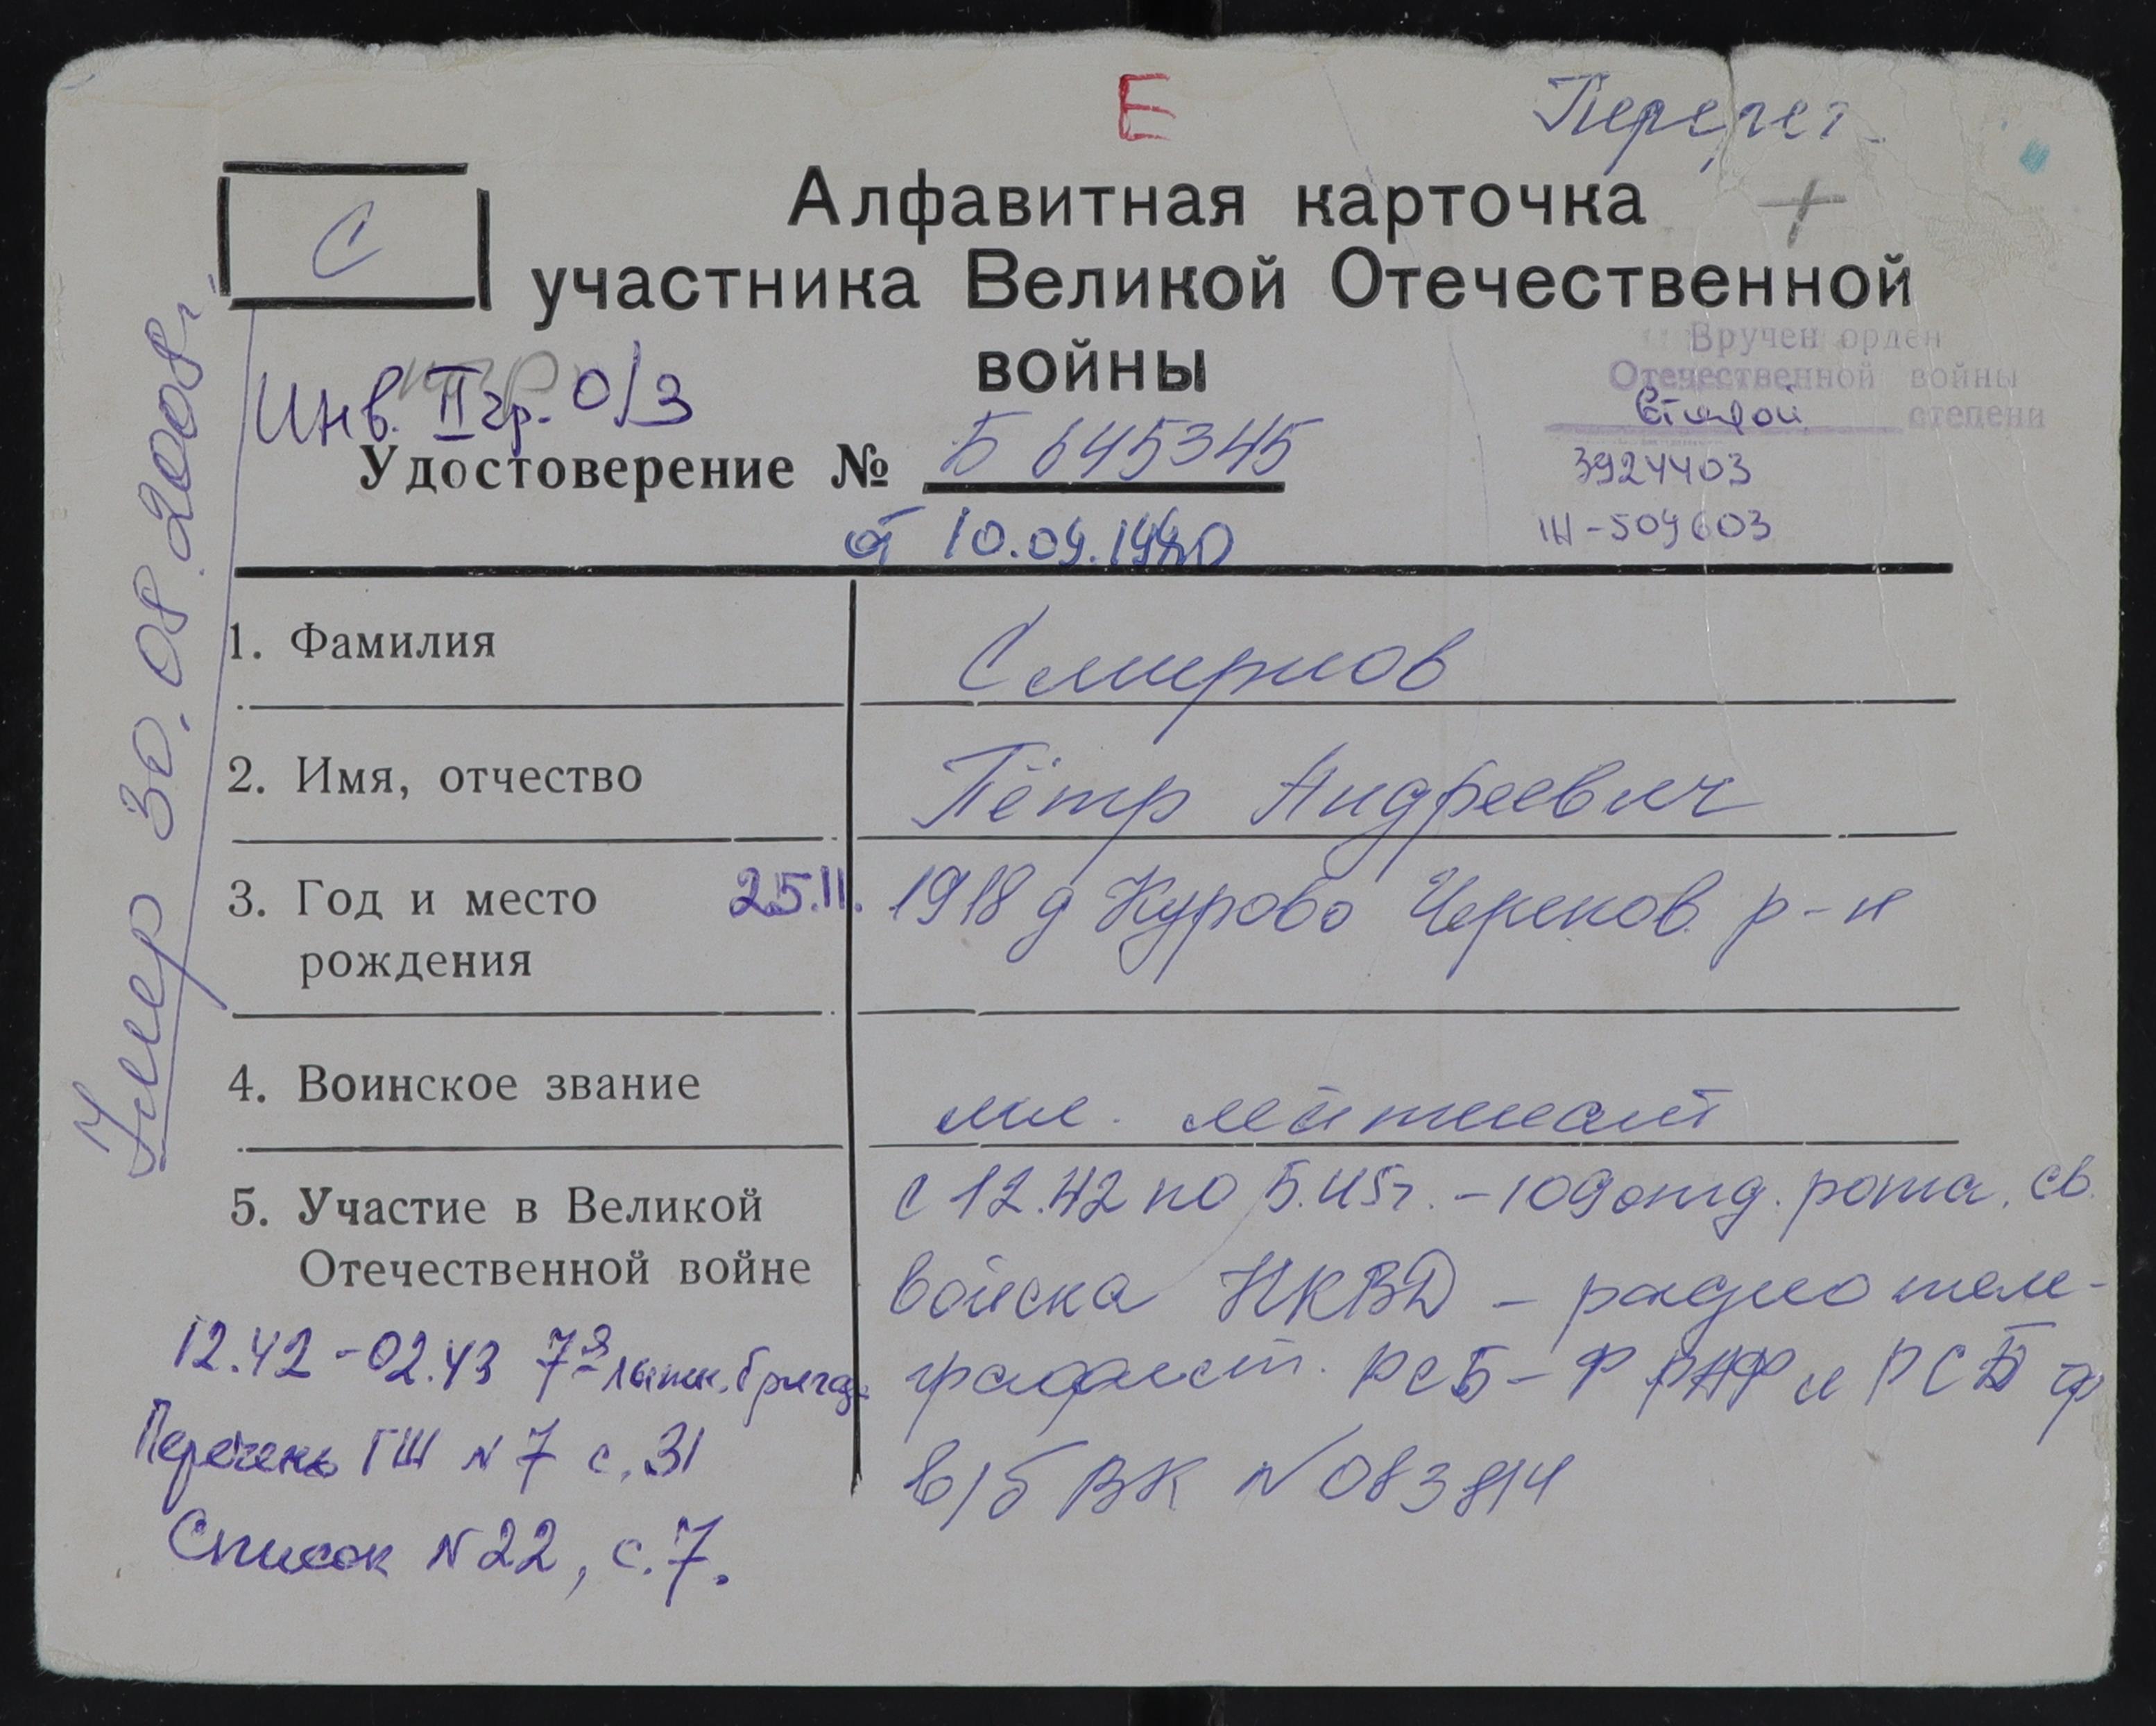 Е
Перечет.
С
Алфавитная карточка
участника Великой Отечественной
войны
Вручен орден
Отечественной войны
второй степени
3924403
Ш-509603
Инв. II гр. О/З
Удостоверение № Б 645345
от 10.09.1980
Умер 30.08.2008г.
1. Фамилия Смирнов
2. Имя, отчество Пётр Андреевич
3. Год и место 25.11. 1918 д Курово Черепов. р-н
рождения
4. Воинское звание мл. лейтенант
5. Участие в Великой
Отечественной войне
с 12.42 по 5.45г. - 109 отд. рота. св.
войска НКВД - радиотеле-
графист. РСБ-Ф РАФ и РСБ ф
в/б ВК №083814
12.42-02.43 7я лыжн. бригада
Перечень ГШ №7 с. 31
Список №22, с.7.